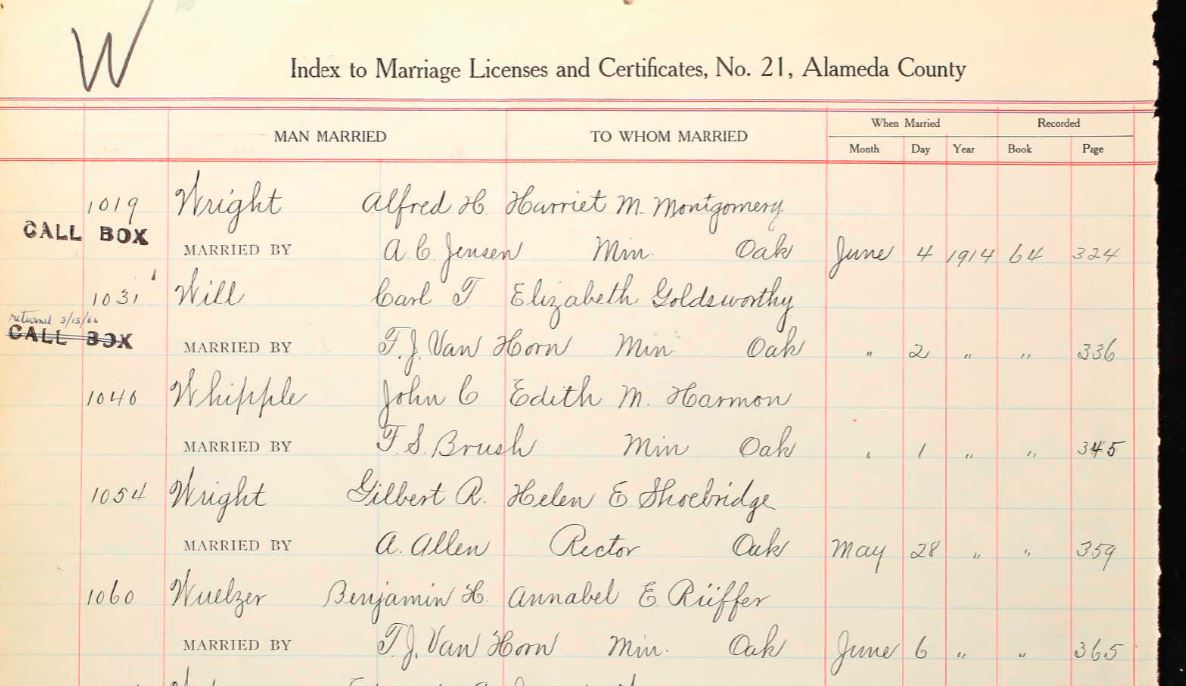 W
Index to Marriage Licenses and Certificates, No. 21, Alameda County
When Married Recorded
MAN MARRIED TO WHOM MARRIED
Month Day Year Book Page
1019 Wright Alfred H Harriet M. Montgomery
CALL BOX
MARRIED BY A. C. Jensen Min. Oak June 4 1914 64 324
1031 Will Carl T Elizabeth Goldsworthy
returned 3/15/66
CALL BOX
MARRIED BY T. J. Van Horn Min Oak " 2 " " 336
1040 Whipple John C Edith M. Harmon
MARRIED BY F. S. Brush Min Oak " 1 " " 345
1054 Wright Gilbert R. Helen E Shoebridge
MARRIED BY A. Allen Rector Oak May 28 " " 359
1060 Wuelzer Benjamin H. Annabel E Rüffer
MARRIED BY T. J. Van Horn Min. Oak June 6 " " 365